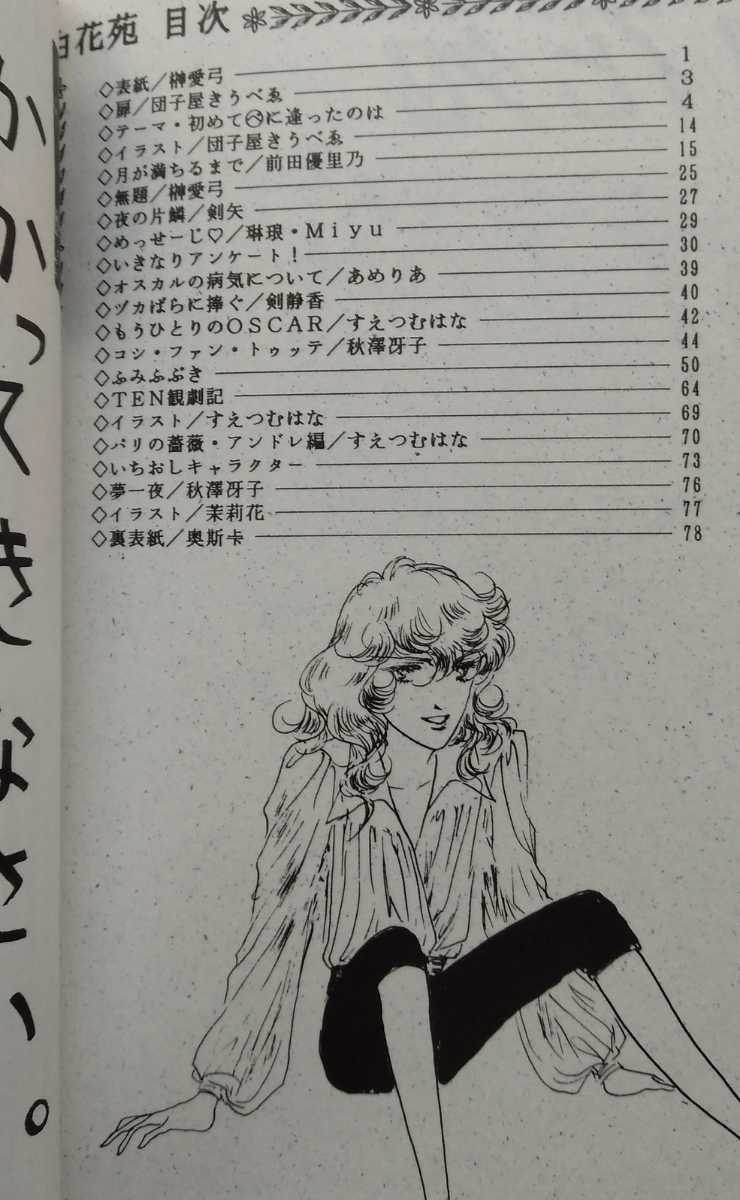 白花苑 目次
◇表紙／榊愛弓 1
◇扉／団子屋きうべゑ 3
◇テーマ・初めて㋬に逢ったのは 4
◇イラスト／団子屋きうべゑ 14
◇月が満ちるまで／前田優里乃 15
◇無題／榊愛弓 25
◇夜の片鱗／剣矢 27
◇めっせーじ♡／琳琅・Ｍｉｙｕ 29
◇いきなりアンケート！ 30
◇オスカルの病気について／あめりあ 39
◇ヅカばらに捧ぐ／剣静香 40
◇もうひとりのＯＳＣＡＲ／すえつむはな 42
◇コシ・ファン・トゥッテ／秋澤冴子 44
◇ふみふぶき 50
◇ＴＥＮ観劇記 64
◇イラスト／すえつむはな 69
◇パリの薔薇・アンドレ編／すえつむはな 70
◇いちおしキャラクター 73
◇夢一夜／秋澤冴子 76
◇イラスト／茉莉花 77
◇裏表紙／奥斯卡 78
かかってきなさい。